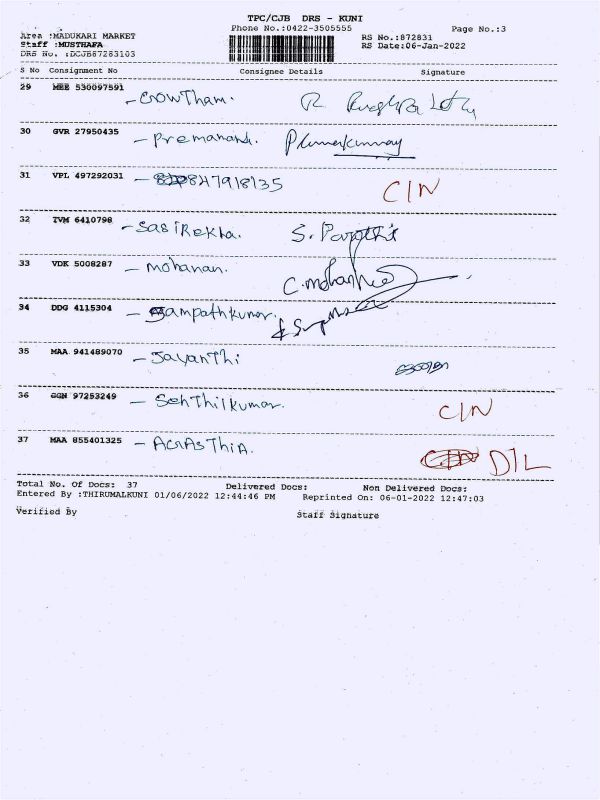 TPC/CJB DRS - KUNI
Phone No.:0422-3505555 Page No.:3
Area :MADUKARI MARKET RS No.:872831
Staff :MUSTHAFA RS Date:06-Jan-2022
DRS No. :DCJB87283103
S No Consignment No Consignee Details Signature
29 MEE 530097591 - Gowtham.
30 GVR 27950435 - Premanand.
31 VPL 497292031 - 847918135 C/N
32 TVM 6410798 - SasiRekha. S. Parvathi
33 VDK 5008287 - mohanan. C. mohan
34 DDG 4115304 - Sampathkumar.
35 MAA 941489070 - Jayanthi
36 GGN 97253249 - Senthilkumar. C/N
37 MAA 855401325 - D/L
Total No. Of Docs: 37 Delivered Docs: Non Delivered Docs:
Entered By :THIRUMALKUNI 01/06/2022 12:44:46 PM Reprinted On: 06-01-2022 12:47:03
Verified By Staff Signature